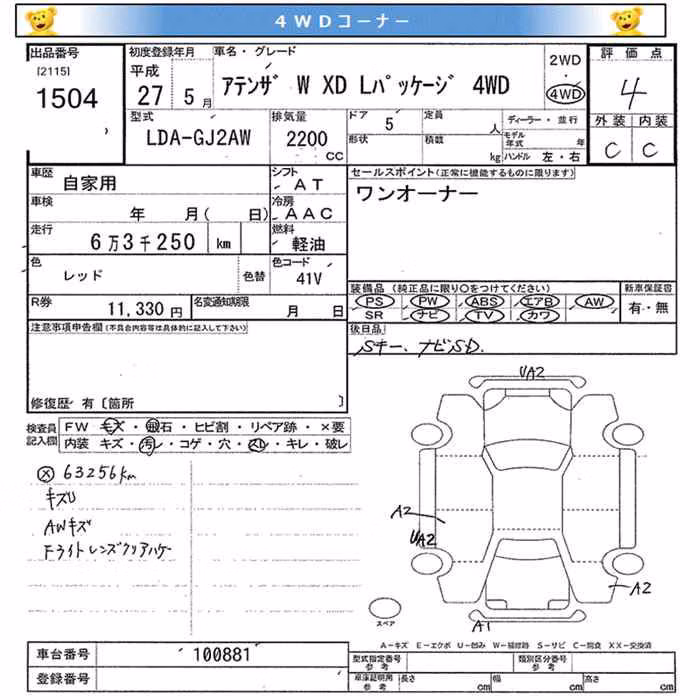 4WDコーナー
出品番号
[2115]
1504
初度登録年月
平成
27 5月
車名・グレード
アテンザ W XD Lパッケージ 4WD
2WD
・
4WD
評価点
4
外装 内装
C C
型式
LDA-GJ2AW
排気量
2200
CC
ドア 5
形状
定員 人
積載 kg
ディーラー・並行
モデル年式 年
ハンドル 左・右
車歴
自家用
シフト
AT
車検
年 月( 日)
冷房
AAC
走行
6万3千250 km
燃料
軽油
色
レッド
色替
色コード
41V
R券
11,330円
名変通知期限
月 日
セールスポイント(正常に機能するものに限ります)
ワンオーナー
装備品 (純正品に限り○をつけてください)
PS PW ABS エアB AW
SR ナビ TV カワ
新車保証書
有・無
後日品
Sキー、ナビSD.
注意事項申告欄(不具合内容等は具体的に記入して下さい)
修復歴 有〔箇所 〕
検査員記入欄
FW キズ・飛石・ヒビ割・リペア跡・×要
内装 キズ・汚レ・コゲ・穴・スレ・キレ・破レ
63256km
キズU
AWキズ
FライトレンズクリアハゲUA2
A2
UA2
A2
A1
スペア
A－キズ E－エクボ U－凹み W－補修跡 S－サビ C－腐食 XX－交換済
車台番号
100881
登録番号
型式指定番号
参考
類別区分番号
参考
車庫証明用
参考
長さ cm
幅 cm
高さ cm